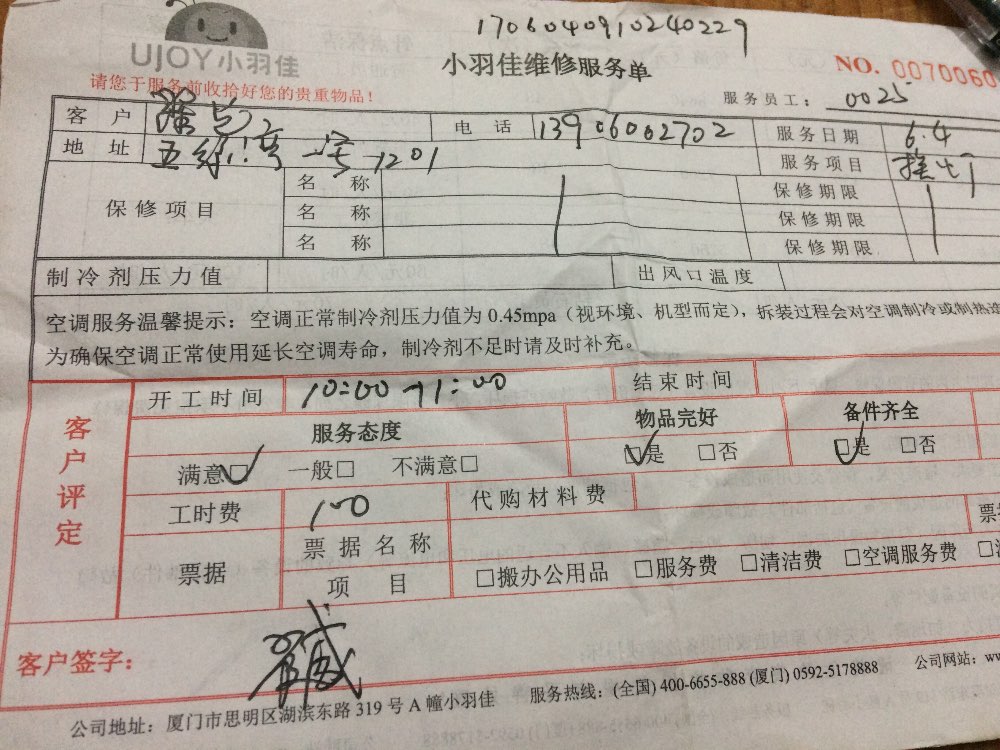 1706040910240229
UJOY小羽佳
小羽佳维修服务单
NO. 0070060
请您于服务前收拾好您的贵重物品！
服务员工： 0025
客户 电话 13906002702 服务日期 6.4
地址 一号1201 服务项目
保修项目 名称 保修期限
名称 保修期限
名称 保修期限
制冷剂压力值 出风口温度
空调服务温馨提示：空调正常制冷剂压力值为 0.45mpa（视环境、机型而定），拆装过程会对空调制冷或制热造
为确保空调正常使用延长空调寿命，制冷剂不足时请及时补充。
客户评定
开工时间 10:00-11:00 结束时间
服务态度 物品完好 备件齐全
满意□ 一般□ 不满意□ □是 □否 □是 □否
工时费 100 代购材料费
票据 票据名称 票
项目 □搬办公用品 □服务费 □清洁费 □空调服务费
客户签字：
公司地址：厦门市思明区湖滨东路 319 号 A 幢小羽佳 服务热线：(全国) 400-6655-888 (厦门) 0592-5178888 公司网站：